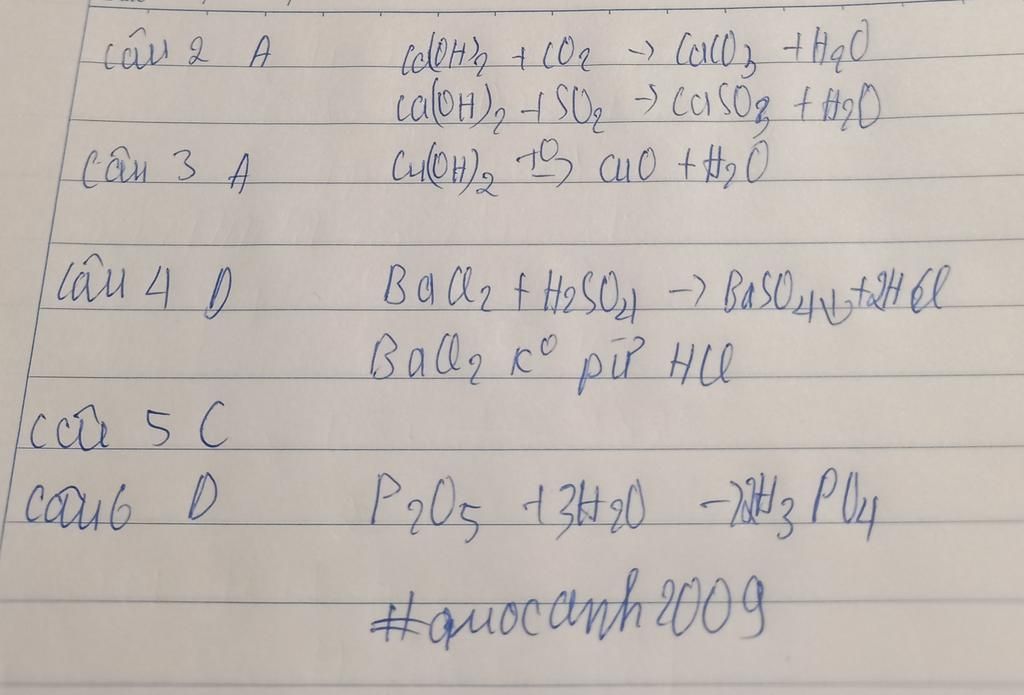 Câu 2 A Ca(OH)2 + CO2 → CaCO3 + H2O
Ca(OH)2 + SO2 → CaSO3 + H2O
Câu 3 A Cu(OH)2 →(t0) CuO + H2O
Câu 4 D BaCl2 + H2SO4 → BaSO4↓ + 2HCl
BaCl2 K0 pứ HCl
Câu 5 C
Câu 6 D P2O5 + 3H2O → 2H3PO4
#quocanh2009